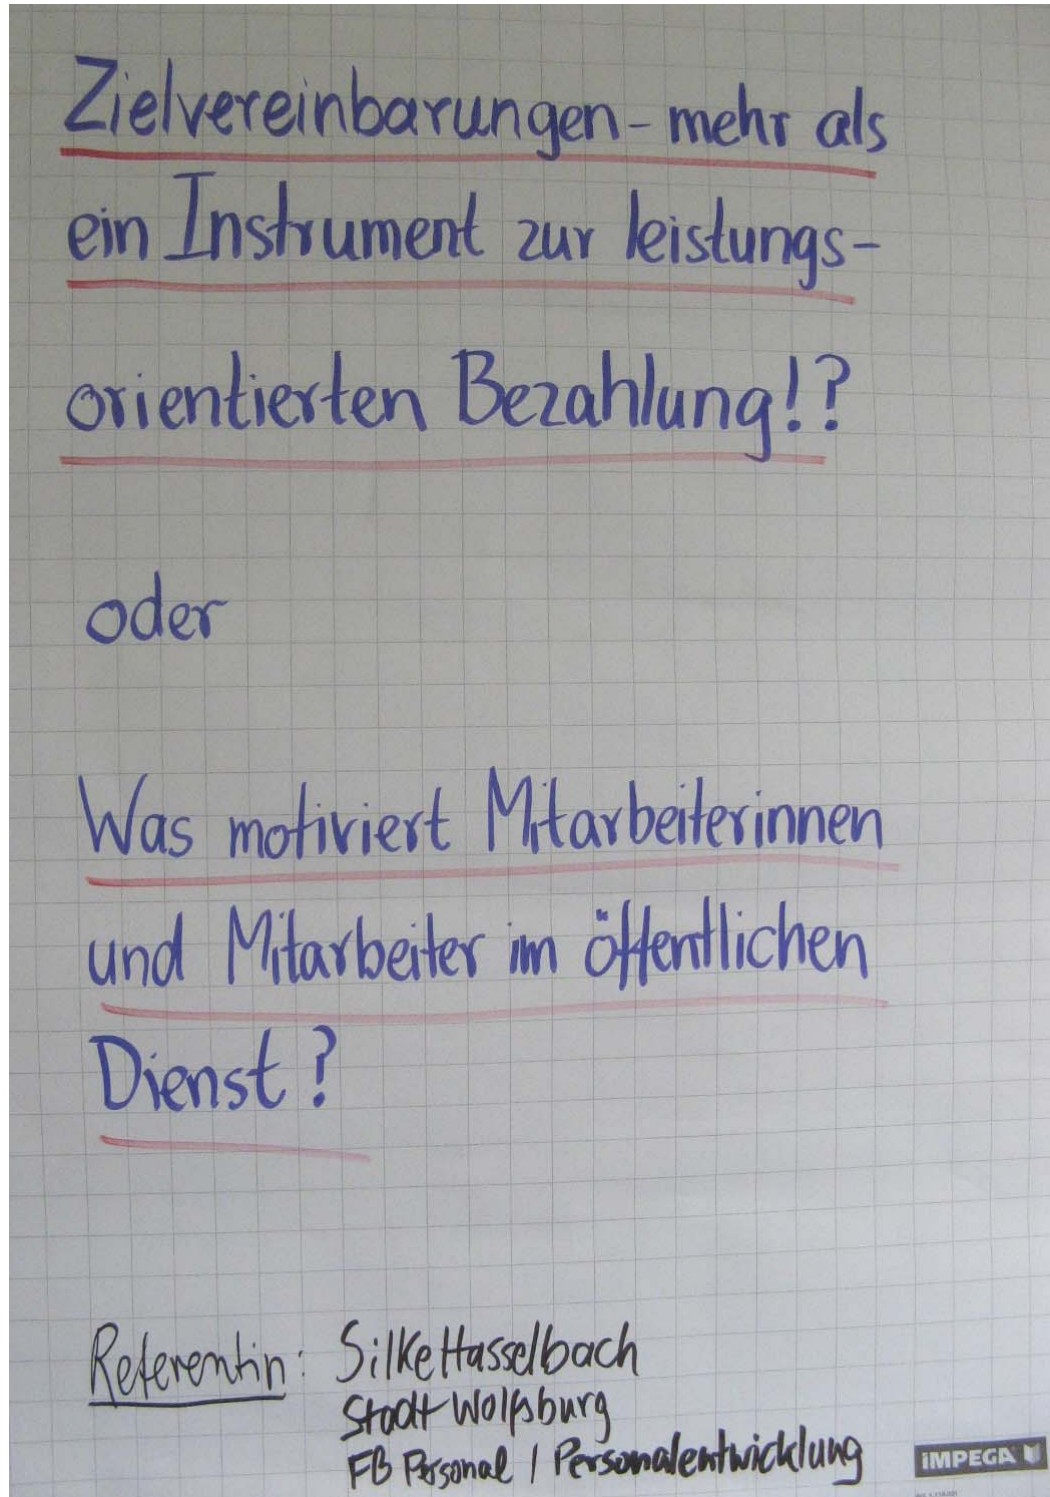 Zielvereinbarungen - mehr als
ein Instrument zur leistungs-
orientierten Bezahlung!?
oder
Was motiviert Mitarbeiterinnen
und Mitarbeiter im öffentlichen
Dienst?
Referentin: Silke Hasselbach
Stadt Wolfsburg
FB Personal / Personalentwicklung
iMPEGA